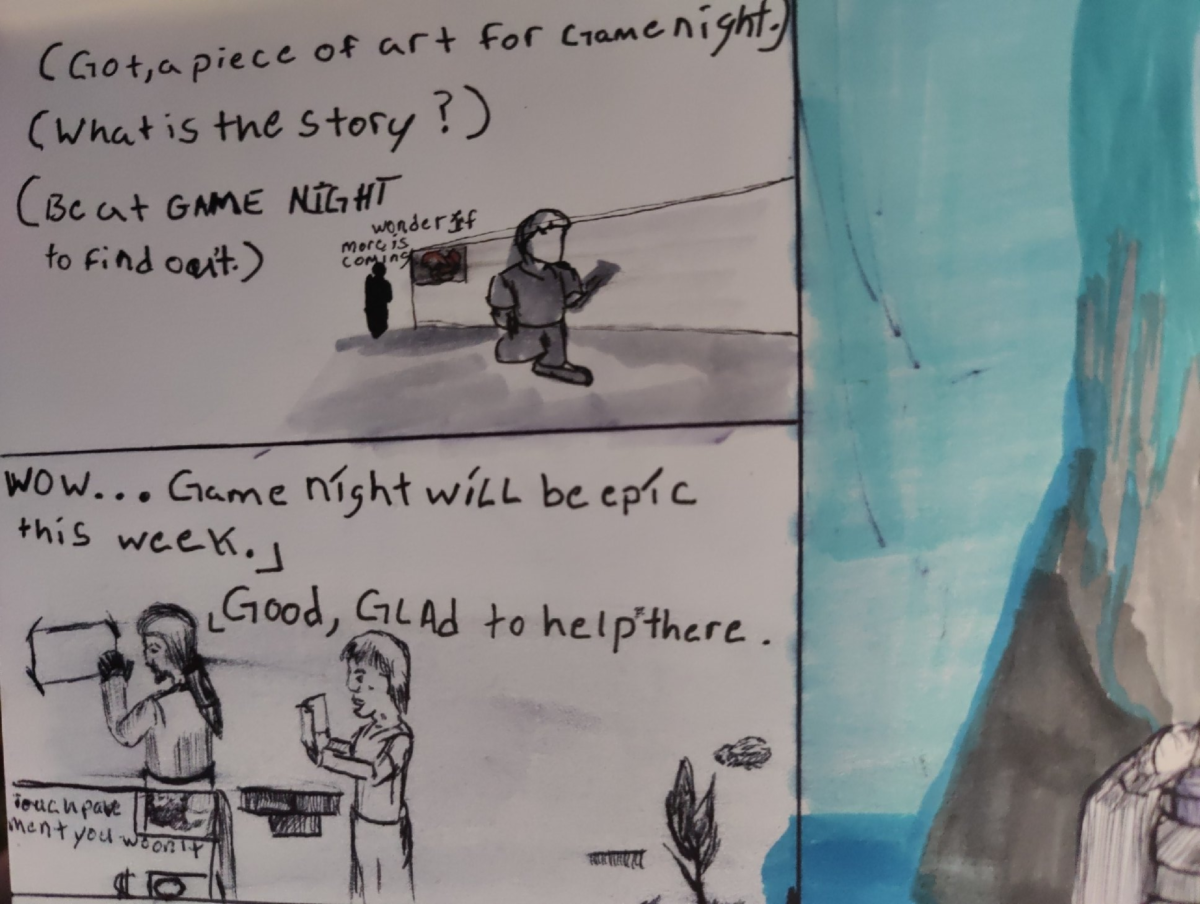 (Got, a piece of art for Game night.)
(What is the story?)
(Be at GAME NIGHT
to find out.)
wonder if
more is
coming
WOW... Game night will be epic
this week.」
「Good, GLAd to help there.
Touch pave
ment you woon't
$